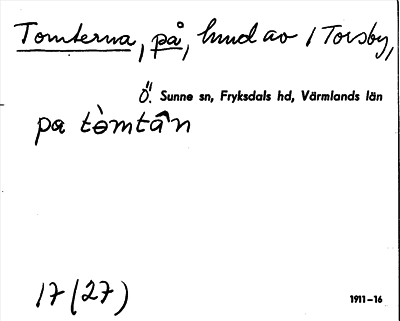 Tomterna, på, hmd av 1 Torsby,
Ö. Sunne sn, Fryksdals hd, Värmlands län
pa tòmtân
17(27)
1911-16